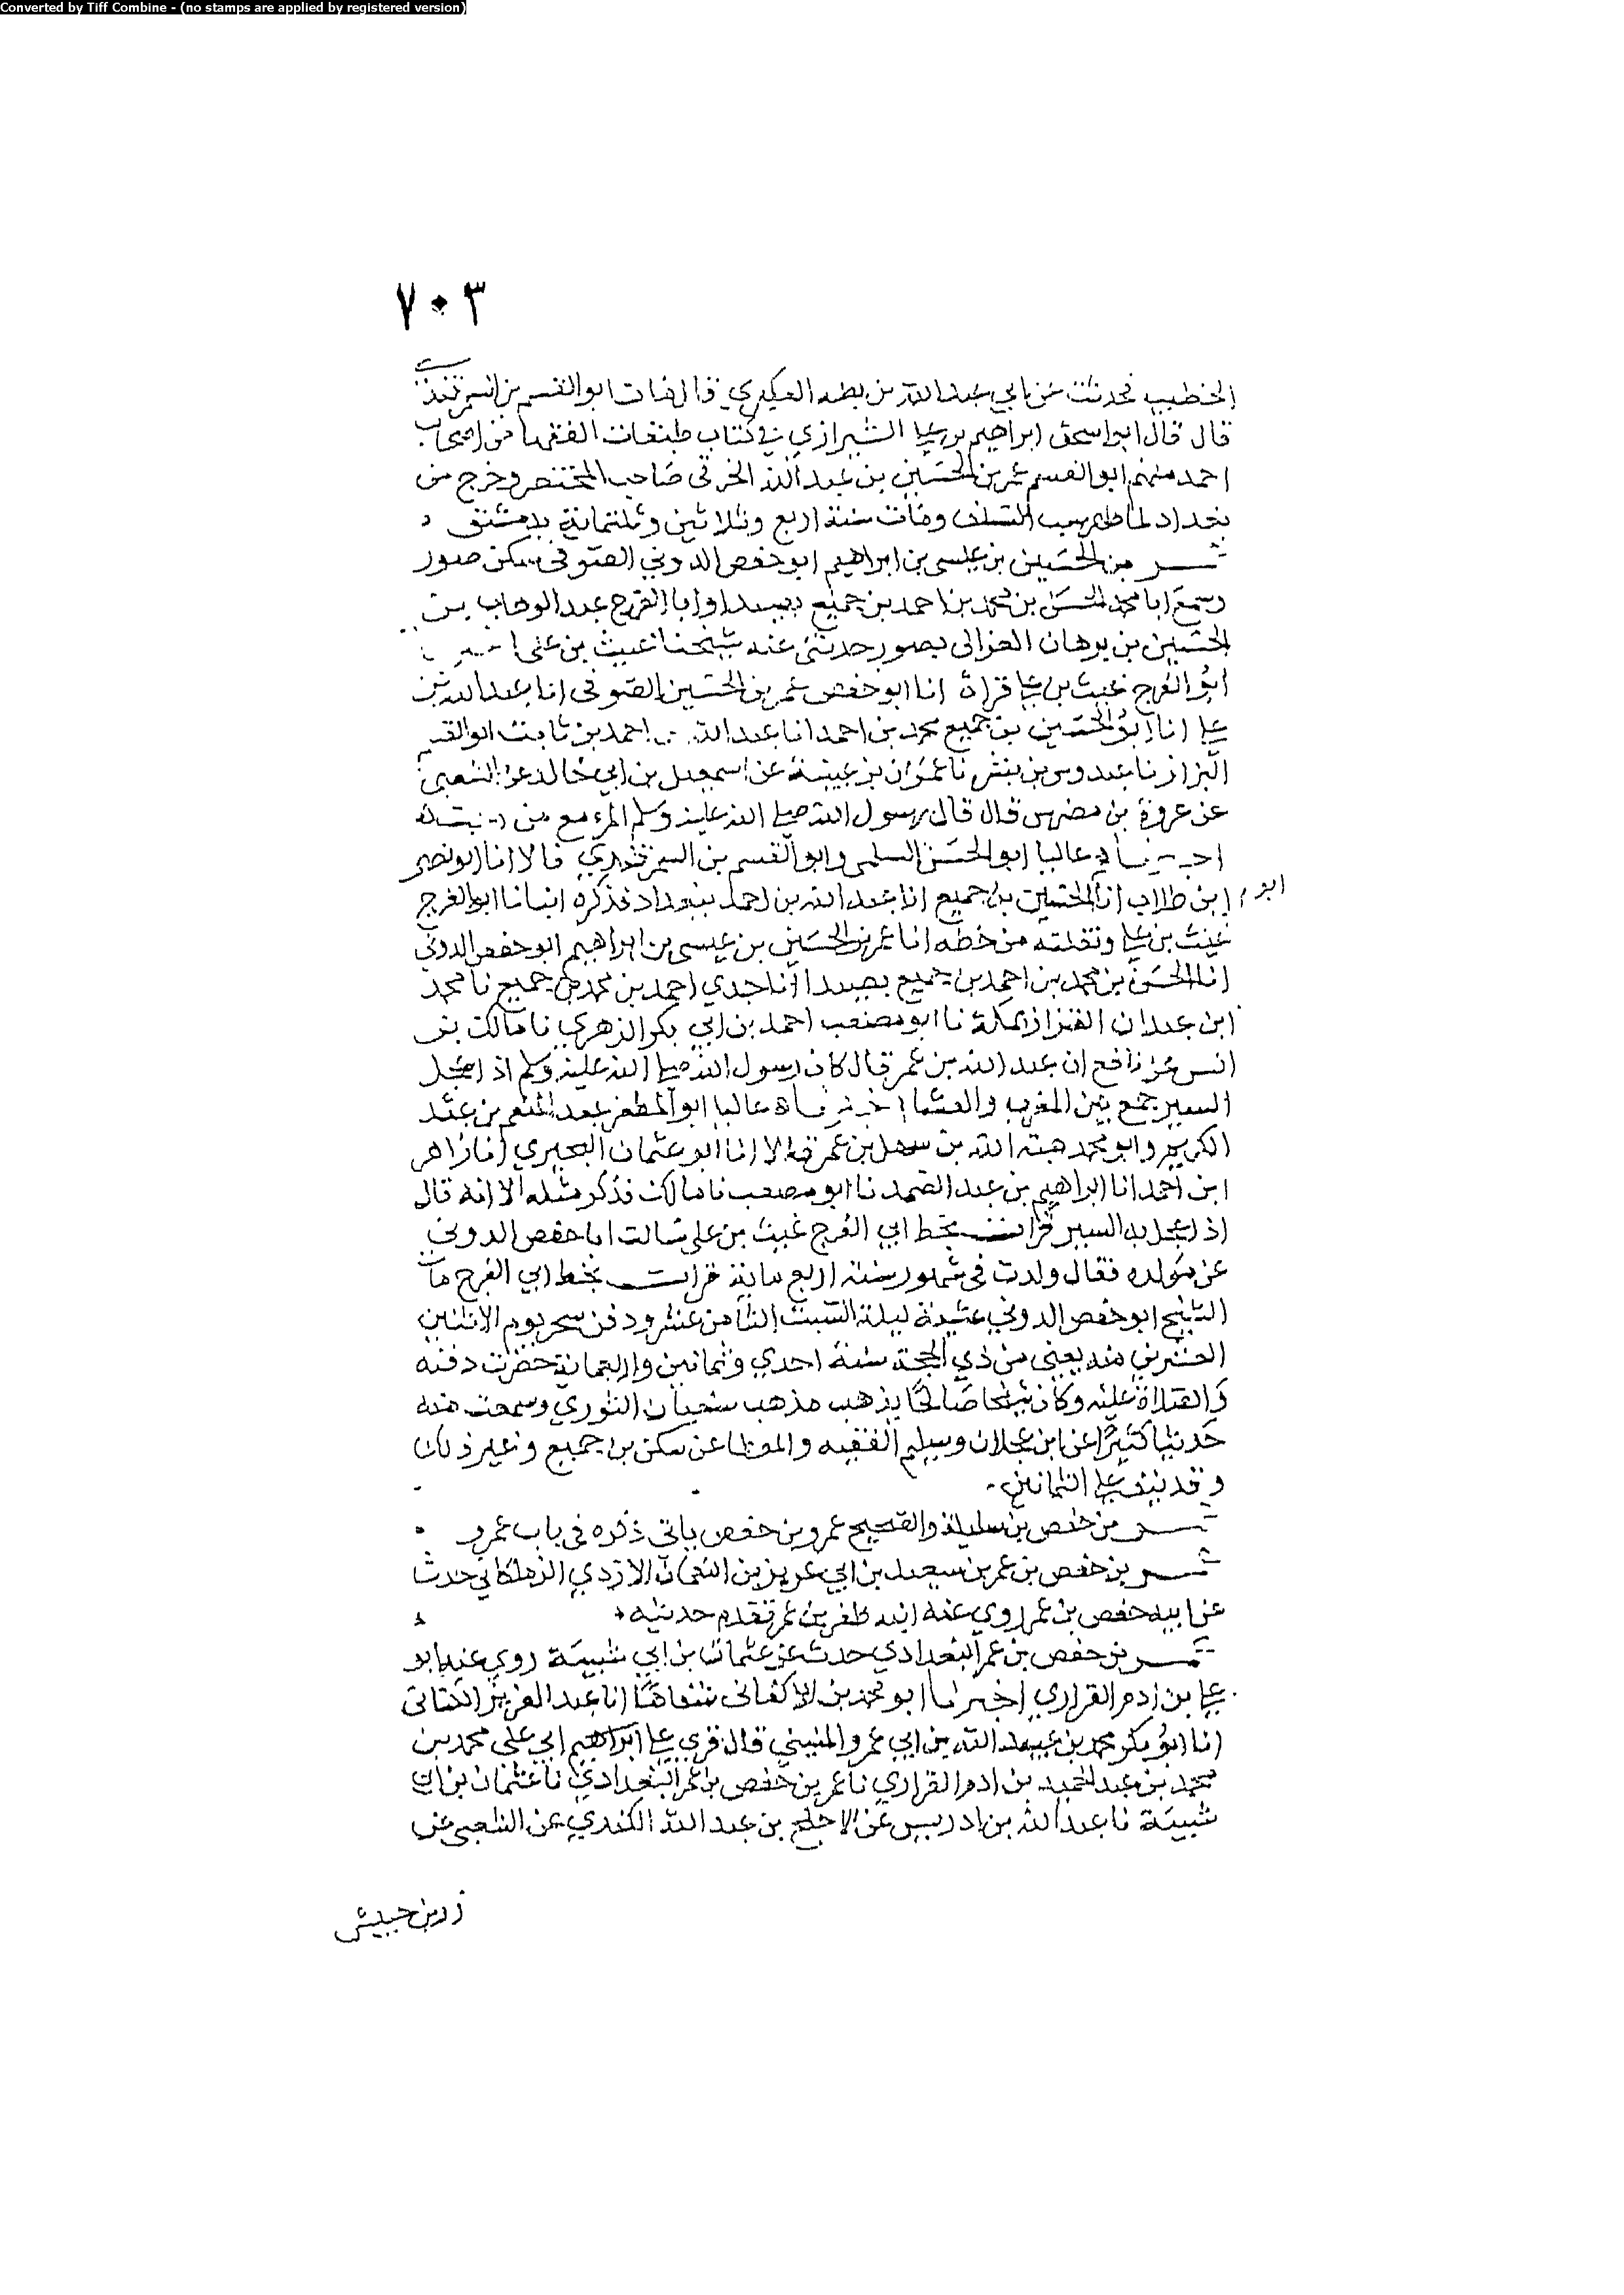 Converted by Tiff Combine - (no stamps are applied by registered version)
٧٠٣
الخطيب فحدثت عن ابي عبد الله بن بطه العكبري قال مات ابو القسم بن السمرقندي
قال قال ابو اسحق ابراهيم بن علي الشيرازي في كتاب طبقات الفقها من اصحاب
احمد منهم ابو القسم عمر بن الحسين بن عبد الله الخرقي صاحب المختصر وخرج من
بغداد لما ظهر سب السلف ومات سنة اربع وثلاثين وثلثمائة بدمشق
عمر بن الحسين بن عيسى بن ابراهيم ابو حفص الدوني الصوفي سكن صور
وسمع ابا محمد الحسن بن محمد بن احمد بن جميع بصيدا وابا الفرج عبد الوهاب بن
الحسين بن برهان الغزالي بصور حدثني عنه شيخنا غيث بن علي
ابو الفرج غيث بن علي قراة انا ابو حفص عمر بن الحسين الصوفي انا عبد الله بن
علي انا ابو الحسين بن جميع محمد بن احمد انا عبد الله بن احمد بن ثابت ابو القسم
البزاز نا عبدوس بن بشر نا عمران بن عيينة عن اسمعيل بن ابي خالد عن الشعبي
عن عروة بن مضرس قال قال رسول الله صلى الله عليه وسلم المرء مع من
عاليا ابو الحسن السلمي وابو القسم بن السمرقندي قالا انا ابو نصر
ابو
ابن طلاب انا الحسين بن جميع انا عبد الله بن احمد ببغداد فذكره انبانا ابو الفرج
غيث بن علي ونقلته من خطه انا عمر بن الحسين بن عيسى بن ابراهيم ابو حفص الدوني
انا الحسن بن محمد بن احمد بن جميع بصيدا انا جدي احمد بن محمد بن جميع نا محمد
ابن عبدان القزاز بمكة نا ابو مصعب احمد بن ابي بكر الزهري نا مالك بن
انس عن نافع ان عبد الله بن عمر قال كان رسول الله صلى الله عليه وسلم اذا عجل
السير جمع بين المغرب والعشا عاليا ابو المظفر عبد المنعم بن عبد
الكريم وابو محمد هبة الله بن سهل بن عمر قالا انا ابو عثمان البحيري انا زاهر
ابن احمد انا ابراهيم بن عبد الصمد نا ابو مصعب نا مالك فذكر مثله الا انه قال
اذا عجل به السير قرات بخط ابي الفرج غيث بن علي سالت ابا حفص الدوني
عن مولده فقال ولدت في شهور سنة اربع ماية قرات بخط ابي الفرج مات
الشيخ ابو حفص الدوني عشية ليلة السبت الثامن عشر ودفن سحر يوم الاثنين
العشرين منه يعني من ذي الحجة سنة احدي وثمانين واربعمائة حضرت دفنه
والصلاة عليه وكان شيخا صالحا يذهب مذهب سفيان الثوري وسمعت منه
حديثا كثيرا عن ابن عجلان وسليم الفقيه والموطا عن سكن بن جميع وغير ذلك
وقد نيف على الثمانين
عمر بن حفص بن سليلة والصحيح عمرو بن حفص ياتي ذكره في باب عمرو
عمر بن حفص بن عمر بن سعيد بن ابي عزيز بن النعمان الازدي الزملكاني حدث
عن ابيه حفص بن عمر روي عنه ابنه ظفر بن عمر تقدم حديثه
عمر بن حفص بن عمر البغدادي حدث عن عثمان بن ابي شيبة روي عنه ابو
علي بن ادم الفزاري اخبرنا ابو محمد بن الاكفاني شفاها انا عبد العزيز الكتاني
انا ابو بكر محمد بن عبيد الله بن ابي عمرو المنيني قال قري على ابراهيم ابي علي محمد بن
محمد بن عبد الحميد بن ادم الفزاري نا عمر بن حفص بن عمر البغدادي نا عثمان بن ابي
شيبة نا عبد الله بن ادريس عن الاجلح بن عبد الله الكندي عن الشعبي عن
زر بن حبيش